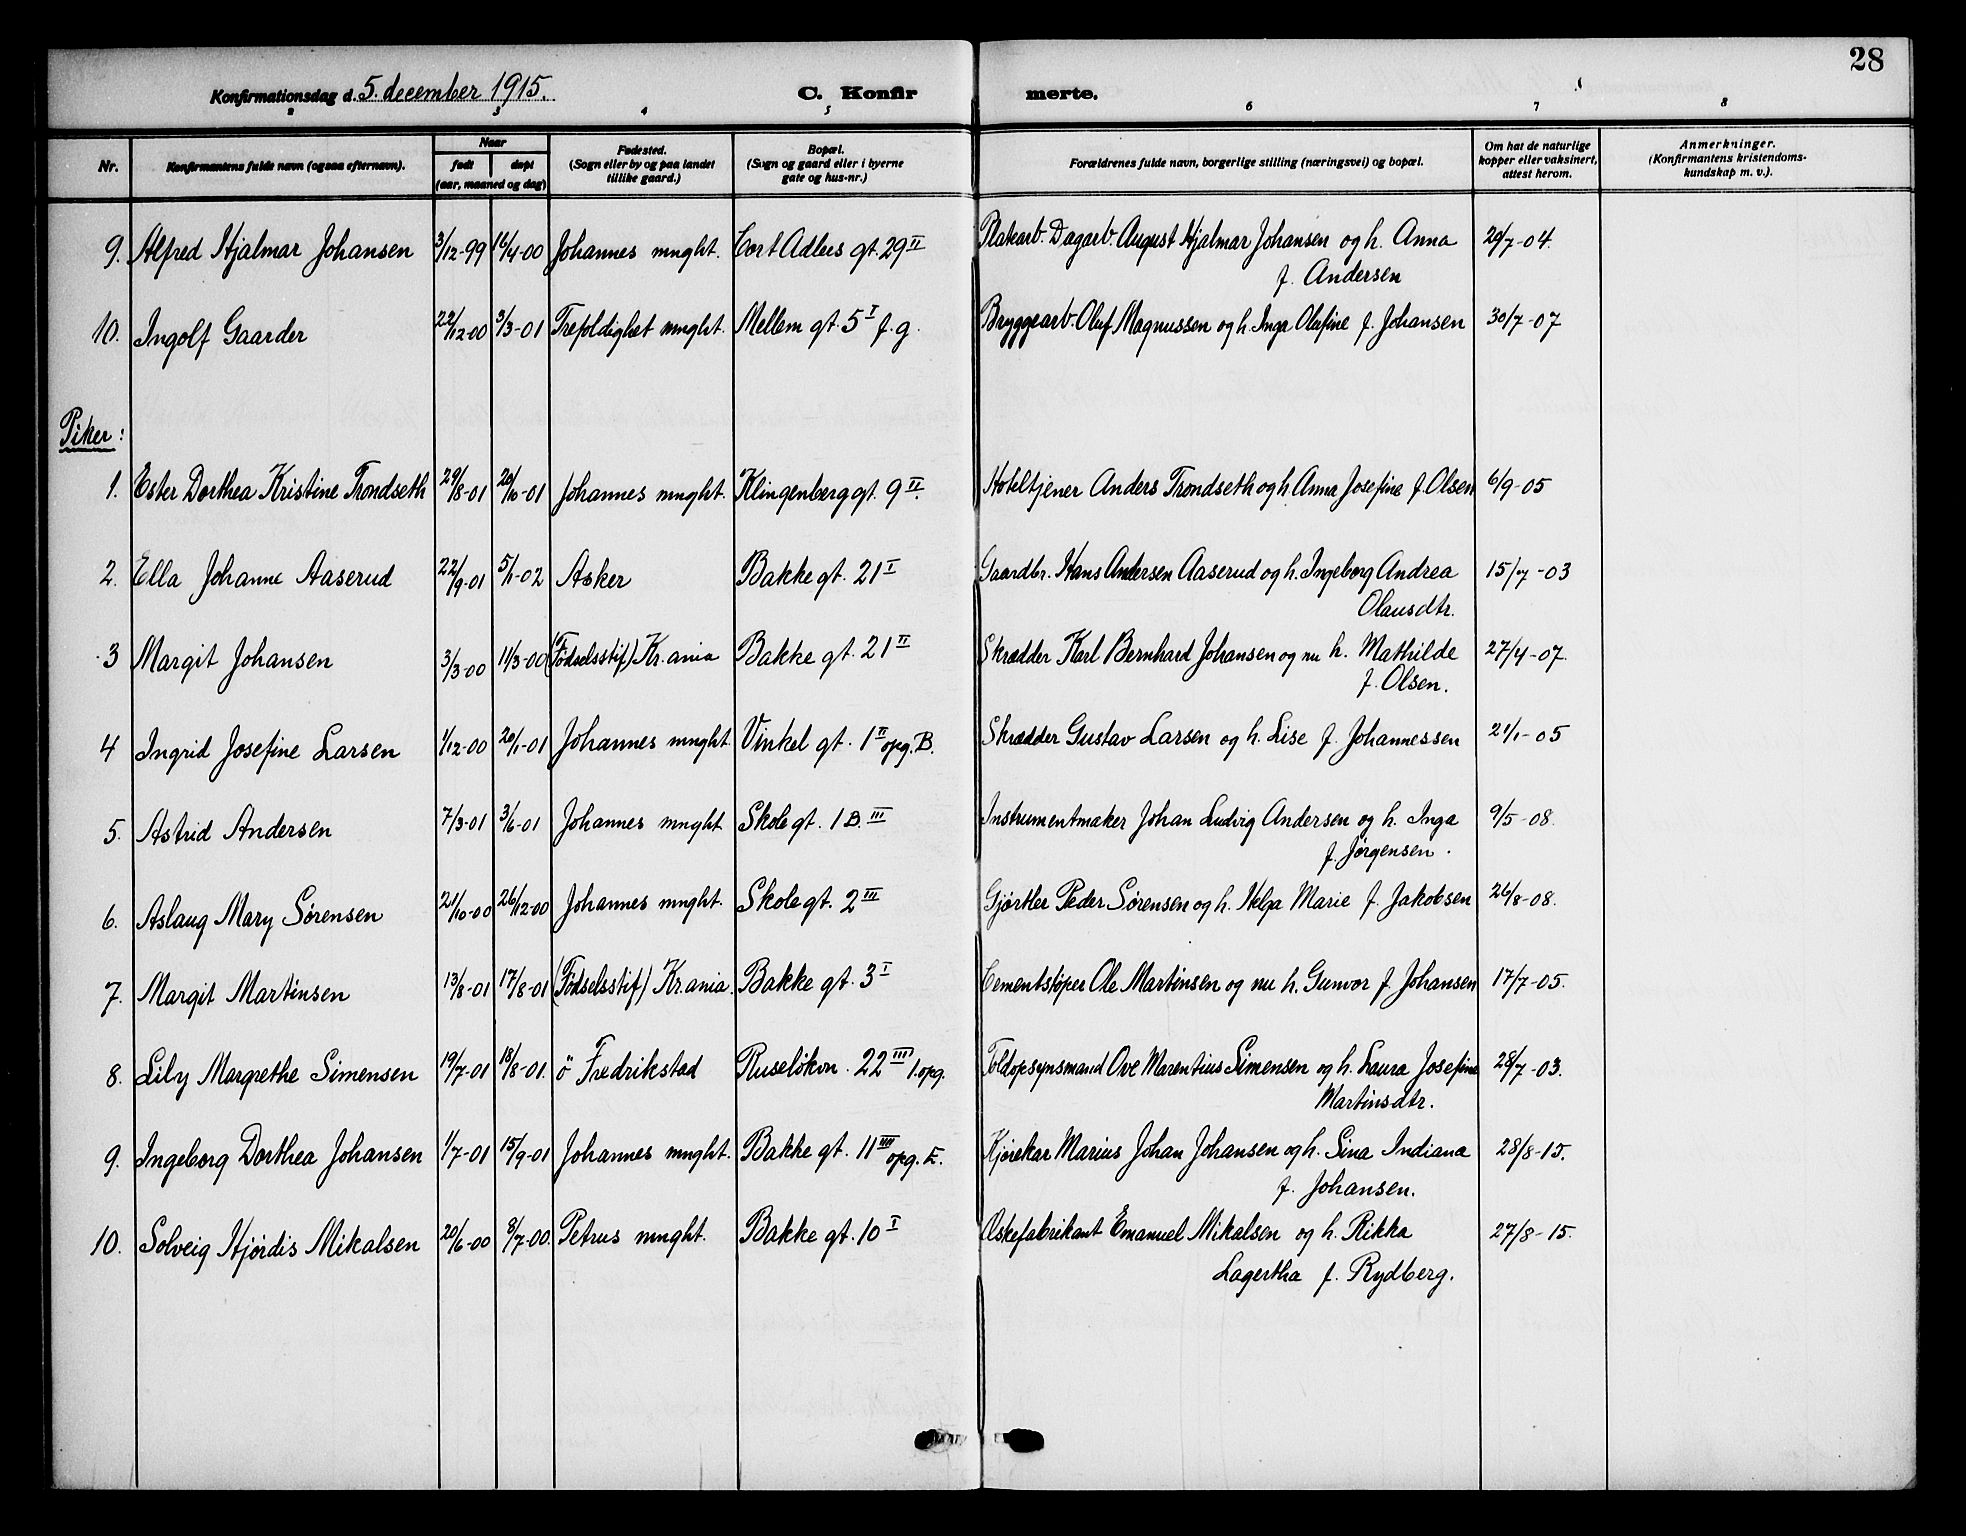 28
Konfirmationsdag d. 5. december 1915. C. Konfirmerte.
2 3 4 5 6 7 8
Nr. Konfirmantens fulde navn (ogsaa efternavn). Naar født døpt (aar, maaned og dag) Fødested. (Sogn eller by og paa landet tillike gaard.) Bopæl. (Sogn og gaard eller i byerne gate og hus-nr.) Forældrenes fulde navn, borgerlige stilling (næringsvei) og bopæl. Om hat de naturlige kopper eller vaksinert, attest herom. Anmerkninger. (Konfirmantens kristendomskundskap m. v.).
9. Alfred Hjalmar Johansen 3/12-99 16/4-00 Johannes mnght. Cort Adlers gt. 29 II Platearb. Dagarb. August Hjalmar Johansen og h. Anna 29/7-04.
f. Andersen
10. Ingolf Gaarder 22/12-00 3/3-01 Trefoldighet mnght. Mellem gt. 5 I f.g. Bryggearb. Oluf Magnussen og h. Inga Olufine f. Johansen 30/7-07
Piker:
1. Ester Dorthea Kristine Trondseth 29/8-01 20/10-01 Johannes mnght. Klingenberg gt. 9 II. Hoteltjener Anders Trondseth og h. Anna Josefine f. Olsen 6/9-05
2. Ella Johanne Aaserud 22/9-01 5/1-02 Asker Bakke gt. 21 I Gaardbr. Hans Andersen Aaserud og h. Ingeborg Andrea 15/7-03
Olausdtr.
3 Margit Johansen 3/3-00 11/3-00 (Fødselsstif) Kr.ania Bakke gt. 21 II Skrædder Karl Bernhard Johansen og nu h. Mathilde 27/4-07.
f. Olsen.
4 Ingrid Josefine Larsen 1/12-00 20/1-01 Johannes mnght. Vinkel gt. 1 II opg. B. Skrædder Gustav Larsen og h. Lise f. Johannessen 21/1-05
5. Astrid Andersen 7/3-01 3/6-01 Johannes mnght. Skole gt. 1 B. III Instrumentmaker Johan Ludvig Andersen og h. Inga 9/5-08.
f. Jørgensen.
6. Aslaug Mary Sørensen 21/10-00 26/12-00 Johannes mnght. Skole gt. 2 III Gjørtler Peder Sørensen og h. Helga Marie f. Jakobsen 26/8-08.
7. Margit Martinsen 13/8-01 17/8-01 (Fødselsstif) Kr.ania. Bakke gt. 3 I Cementstøper Ole Martinsen og nu h. Gunvor f. Johansen 17/7-05.
8. Lily Margrethe Simensen 19/7-01 18/8-01. ö Fredrikstad Ruseløkvn. 22 III 1. opg. Toldopsynsmand Ove Marentius Simensen og h. Laura Josefine 28/7-03.
Martinsdtr.
9. Ingeborg Dorthea Johansen 1/7-01 15/9-01 Johannes mnght. Bakke gt. 11 IIII opg. E. Kjørekar Marius Johan Johansen og h. Sina Indiana 28/8-15.
f. Johansen.
10. Solveig Hjørdis Mikalsen 20/6-00 8/7-00. Petrus mnght. Bakke gt. 10 I Æskefabrikant Emanuel Mikalsen og h. Rikka 27/8-15.
Lagertha f. Rydberg.